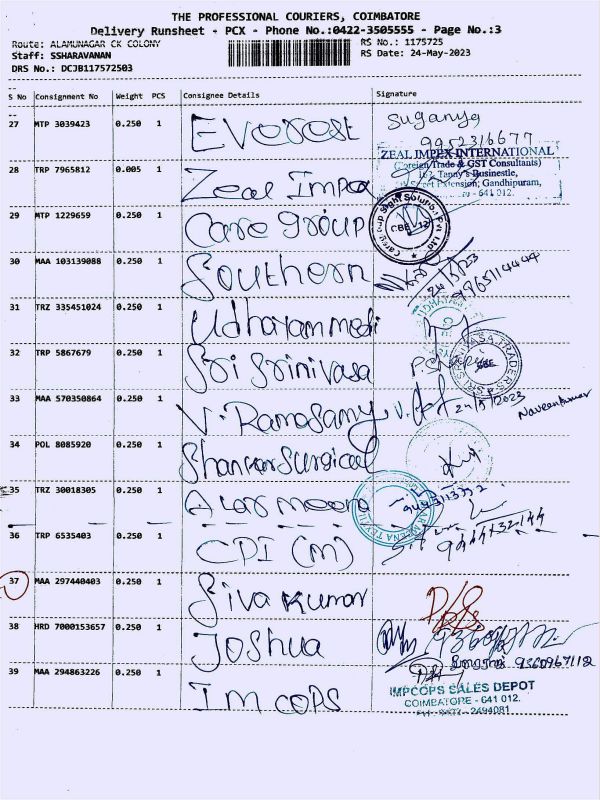 THE PROFESSIONAL COURIERS, COIMBATORE
Delivery Runsheet - PCX - Phone No.:0422-3505555 - Page No.:3
Route: ALAMUNAGAR CK COLONY RS No.: 1175725
Staff: SSHARAVANAN RS Date: 24-May-2023
DRS No.: DCJB117572503
S No Consignment No Weight PCS Consignee Details Signature
27 MTP 3039423 0.250 1 Everest Suganya
9952316677
ZEAL IMPEX INTERNATIONAL
(Foreign Trade & GST Consultants)
28 TRP 7965812 0.005 1 Zeal Impex
Extension, Gandhipuram,
- 641 012.
29 MTP 1229659 0.250 1 Care group
CBE - 12
30 MAA 103139088 0.250 1 Southern
24/5/23
9965114444
31 TRZ 335451024 0.250 1 Udhayam medi
32 TRP 5867679 0.250 1 Sri Srinivasa
CBE
33 MAA 570350864 0.250 1 V. Ramasamy V. 24/5/2023
Naveenkumar
34 POL 8085920 0.250 1 Shankar Surgical
35 TRZ 30018305 0.250 1 Alar meena
36 TRP 6535403 0.250 1 CPI (M)
37 MAA 297440403 0.250 1 Siva Kumar
38 HRD 7000153657 0.250 1 Joshua
9360967112
39 MAA 294863226 0.250 1 IMCOPS
IMPCOPS SALES DEPOT
COIMBATORE - 641 012.
PH: 0422 - 2494081